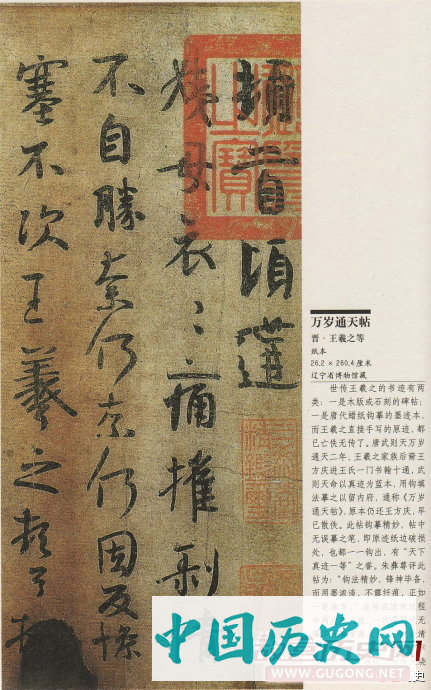 頓首頃遘
姨母哀〻痛摧剝
不自勝奈何奈何因反慘
塞不次王羲之頓首
之寶
万岁通天帖
晋·王羲之等
纸本
26.2 × 260.4 厘米
辽宁省博物馆藏
世传王羲之的书迹有两
类:一是木版或石刻的碑帖;
一是唐代蜡纸钩摹的墨迹本,
而王羲之直接手写的原迹,都
已亡佚无传了。唐武则天万岁
通天二年,王羲之家族后裔王
方庆进王氏一门书翰十通,武
则天命以真迹为蓝本,用钩填
法摹之以留内府,通称《万岁
通天帖》,原本仍还王方庆,早
已散佚。此帖钩摹精妙,帖中
无误摹之笔,即原迹纸边破损
处,也都一一钩出,有“天下
真迹一等”之誉。朱彝尊评此
帖为:“钩法精妙,锋神毕备,
而用墨浓淡,不露纤痕,正如
一笔独写。”此帖在流传过程
中国历史网
WWW.GUGONG.NET